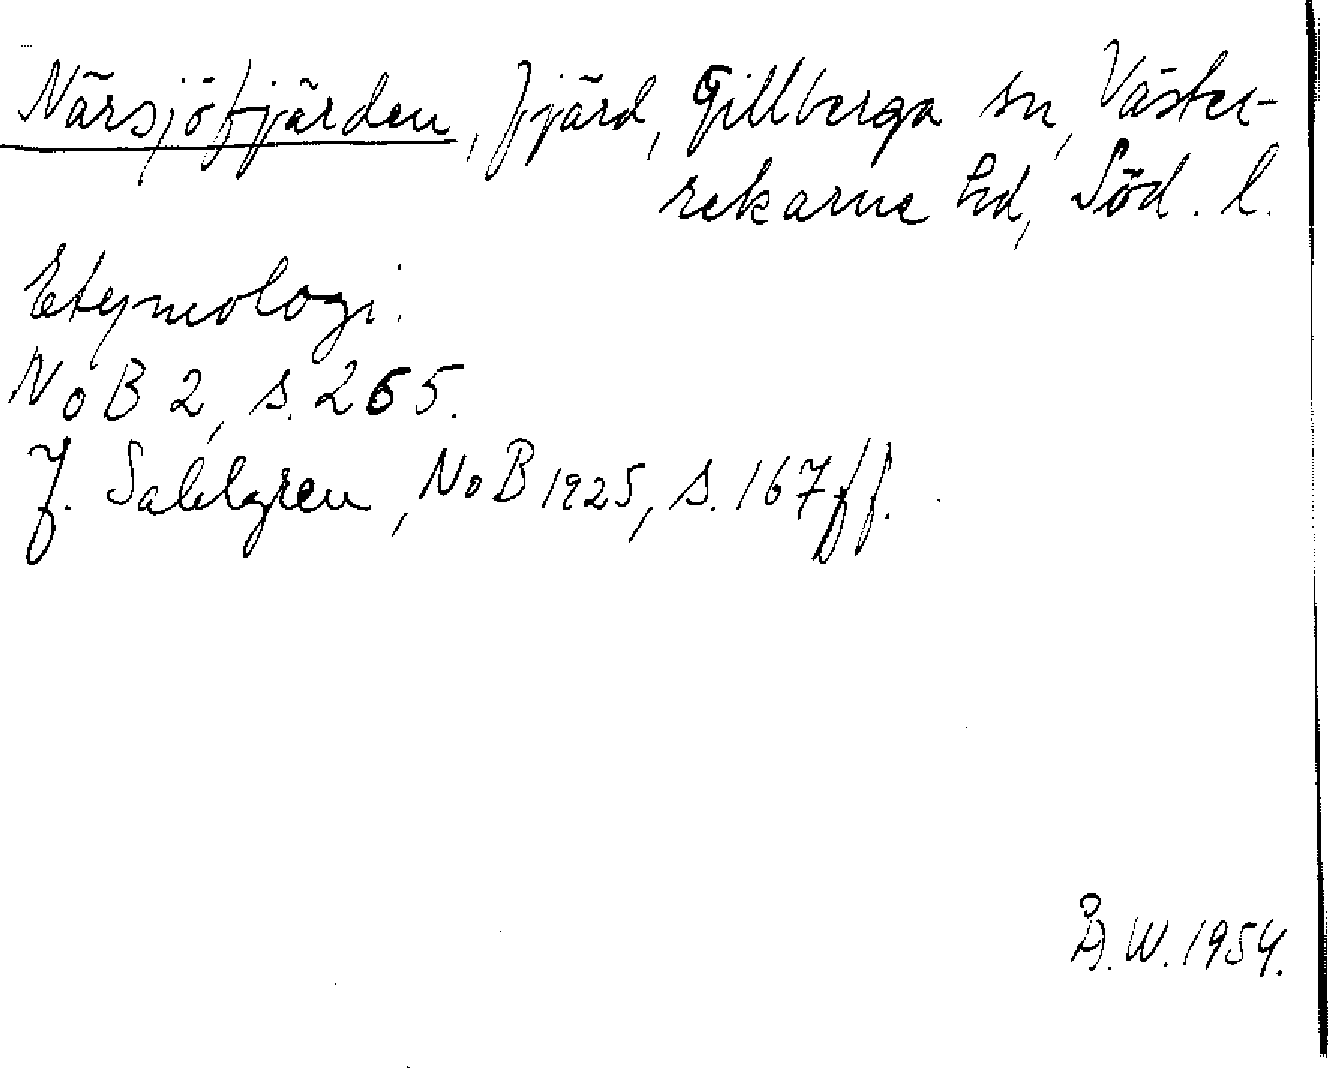 Närsjöfjärden, fjärd, Gillberga sn, Väster-
rekarne hd, Söd. l.
Etymologi.
NoB 2, s. 265.
J. Sahlgren, NoB 1925, s. 167 ff.
Å.W. 1954.